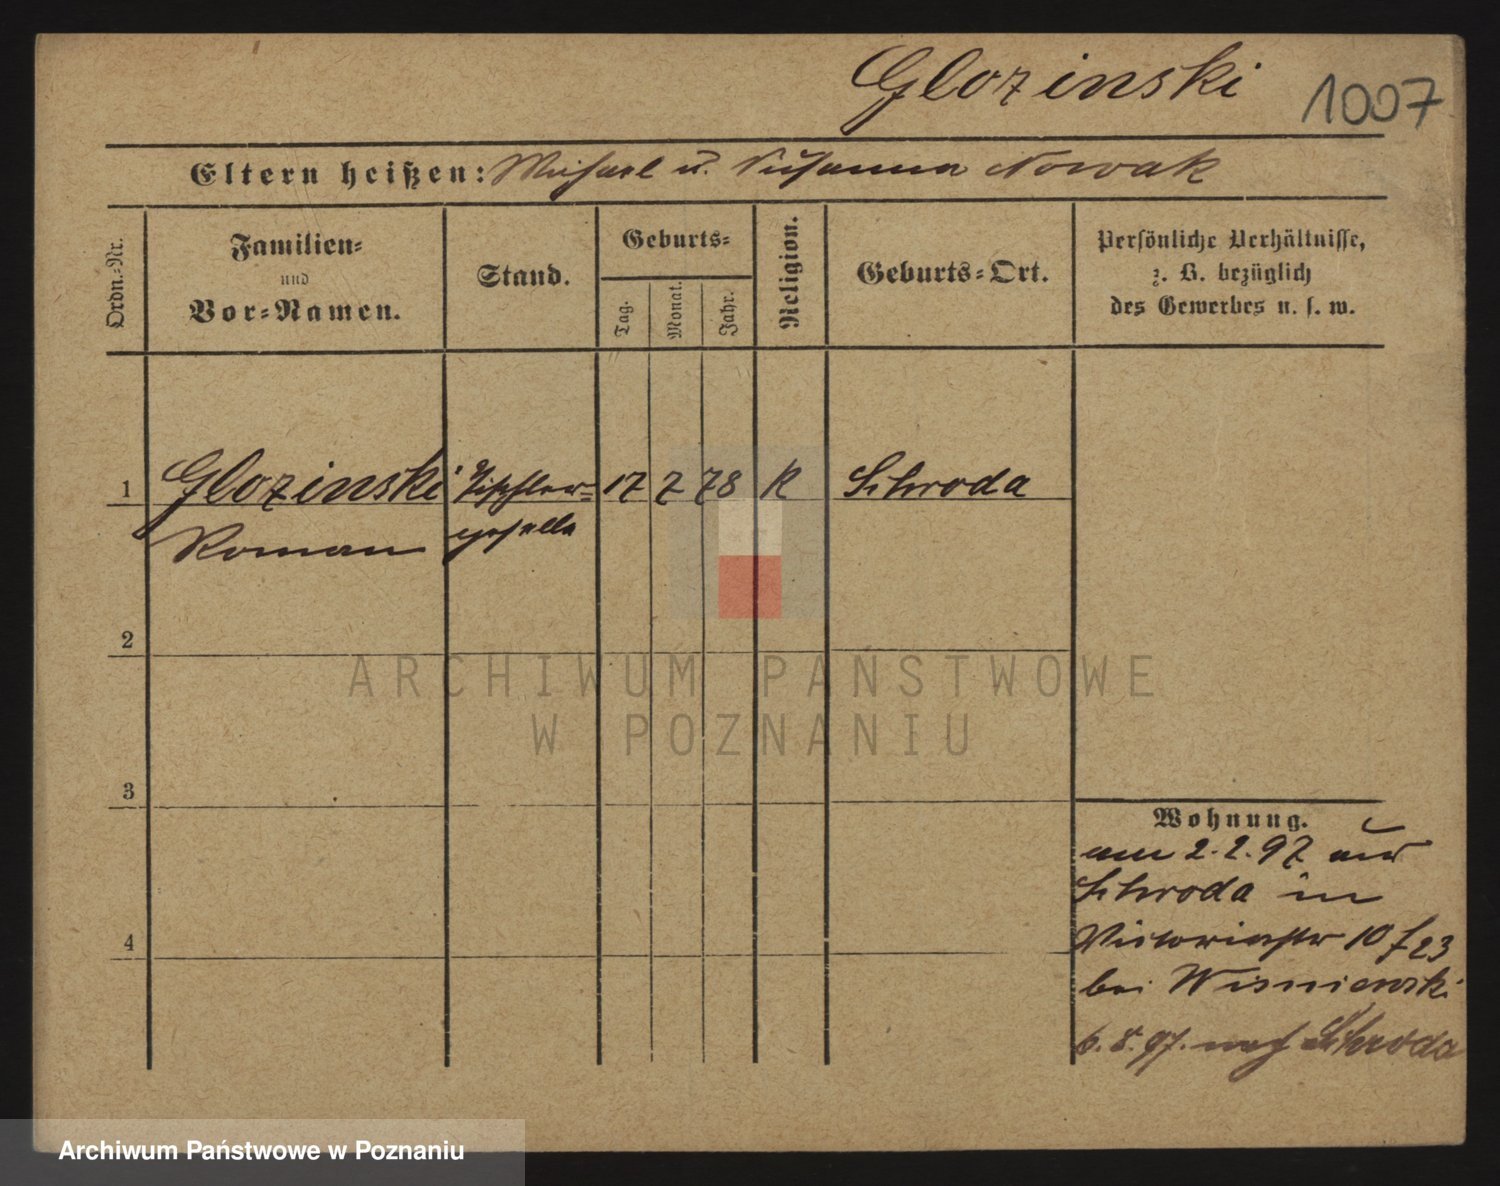 Glozinski 1007
Eltern heißen: Michael u. Susanna Nowak
Ordn.-Nr.
Familien-
und
Vor-Namen.
Stand.
Geburts-
Tag.
Monat.
Jahr.
Religion.
Geburts-Ort.
Persönliche Verhältnisse,
z. B. bezüglich
des Gewerbes u. s. w.
1 Glozinski Tischler= 17 7 78 K Schroda
Roman geselle
2
ARCHIWUM PAŃSTWOWE
W POZNANIU
3
Wohnung.
am 2.2.97 aus
Schroda in
Victoriastr 10 f 23
bei Wisniewski
4
6.8.97. nach Schroda
Archiwum Państwowe w Poznaniu